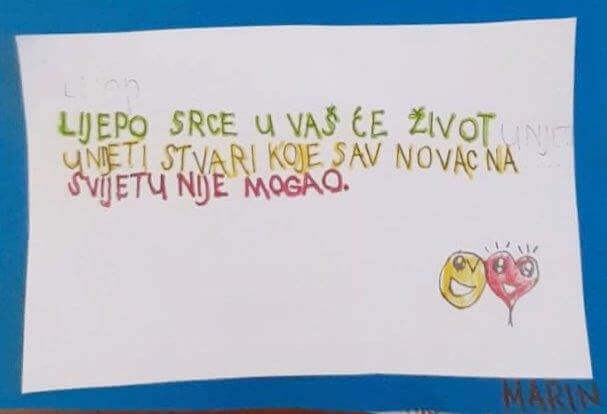 LIJEPO SRCE U VAŠ ĆE ŽIVOT
UNIJETI STVARI KOJE SAV NOVAC NA
SVIJETU NIJE MOGAO.
MARIN